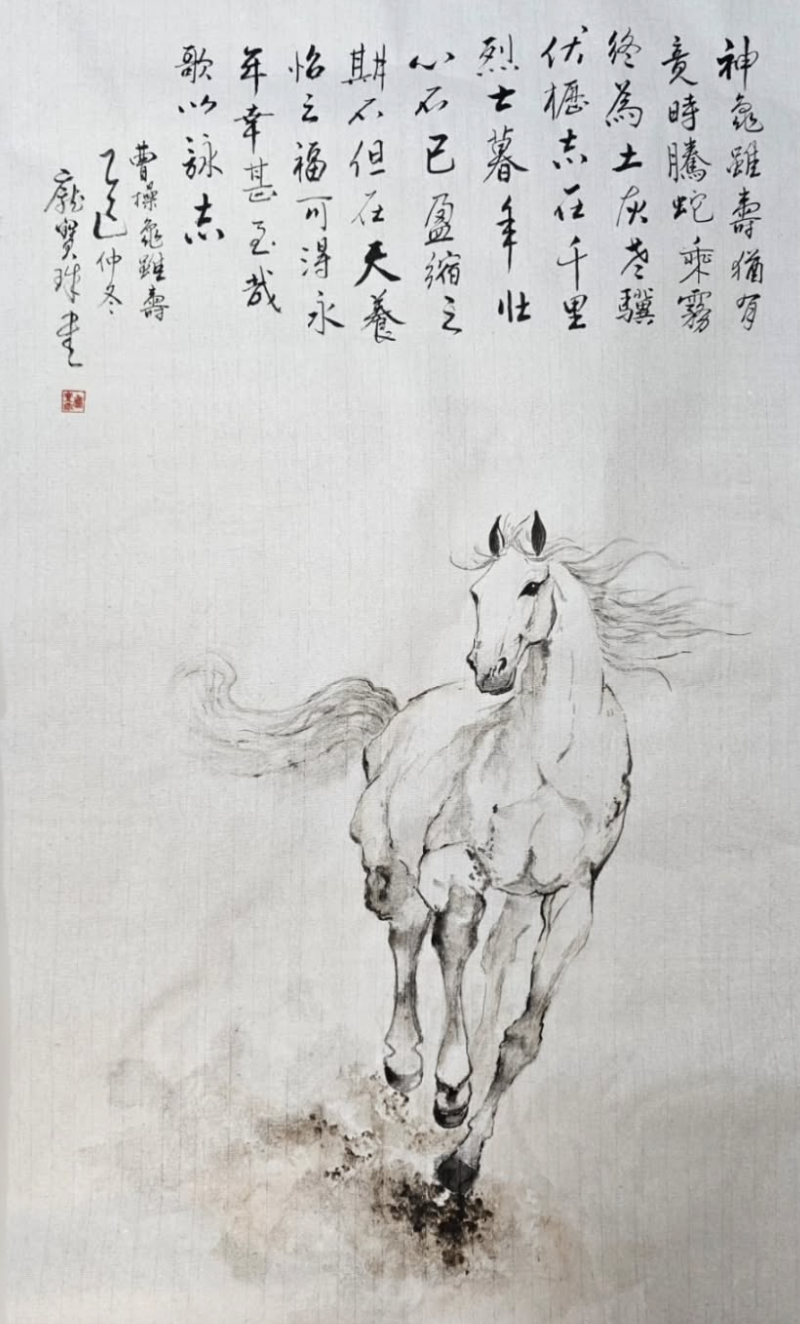 神龜雖壽猶有
竟時騰蛇乘霧
終為土灰老驥
伏櫪志在千里
烈士暮年壯
心不已盈縮之
期不但在天養
怡之福可得永
年幸甚至哉
歌以詠志
曹操龜雖壽
乙巳仲冬
龐寶珠書